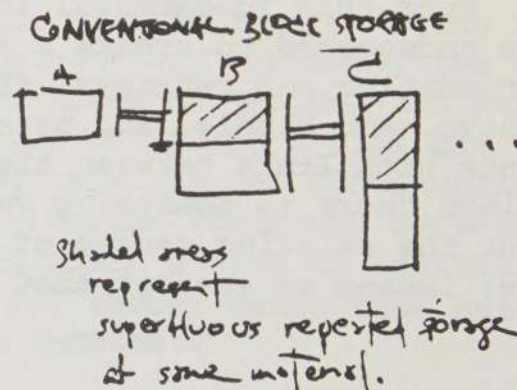 CONVENTIONAL BLOCK STORAGE
A B C
...
Shaded areas
represent
superfluous repeated storage
of same material.